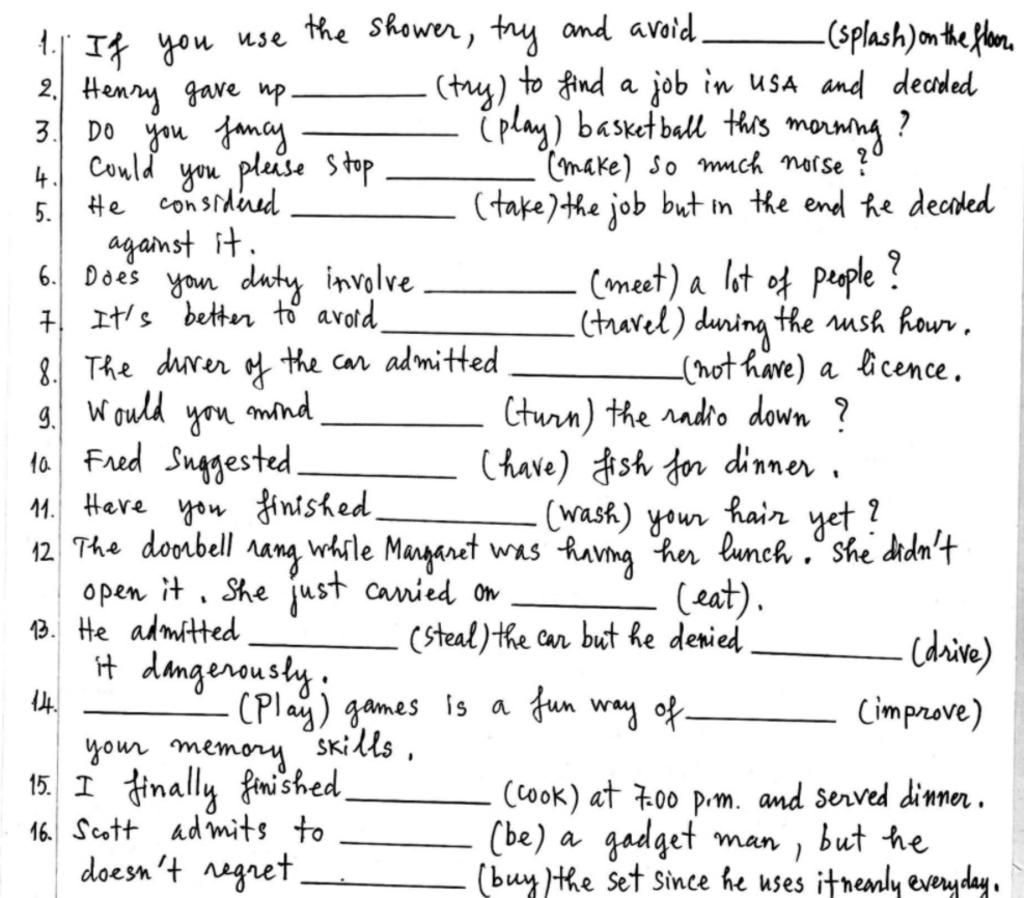 1. If you use the shower, try and avoid ________ (splash) on the floor.
2. Henry gave up ________ (try) to find a job in USA and decided
3. Do you fancy ________ (play) basketball this morning ?
4. Could you please stop ________ (make) so much noise ?
5. He considered ________ (take) the job but in the end he decided
against it.
6. Does your duty involve ________ (meet) a lot of people ?
7. It's better to avoid ________ (travel) during the rush hour.
8. The driver of the car admitted ________ (not have) a licence.
9. Would you mind ________ (turn) the radio down ?
10. Fred Suggested ________ (have) fish for dinner.
11. Have you finished ________ (wash) your hair yet ?
12 The doorbell rang while Margaret was having her lunch. She didn't
open it. She just carried on ________ (eat).
13. He admitted ________ (steal) the car but he denied ________ (drive)
it dangerously.
14. ________ (Play) games is a fun way of ________ (improve)
your memory skills.
15. I finally finished ________ (cook) at 7.00 p.m. and served dinner.
16. Scott admits to ________ (be) a gadget man, but he
doesn't regret ________ (buy) the set since he uses it nearly everyday.